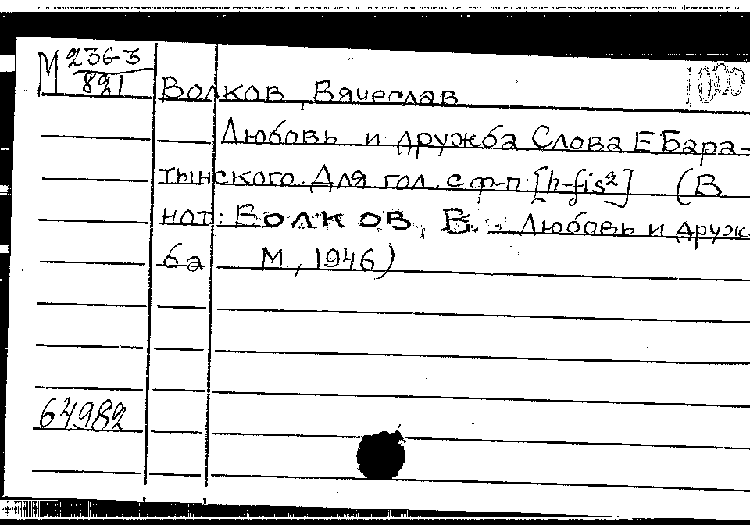 М 236-3
821
1000
Волков, Вячеслав
Любовь и дружба Слова Е Бара-
тынского. Для гол. с ф-п. [h-fis²] (В
нот: Волков, В. – Любовь и друж-
ба М, 1946)
64982